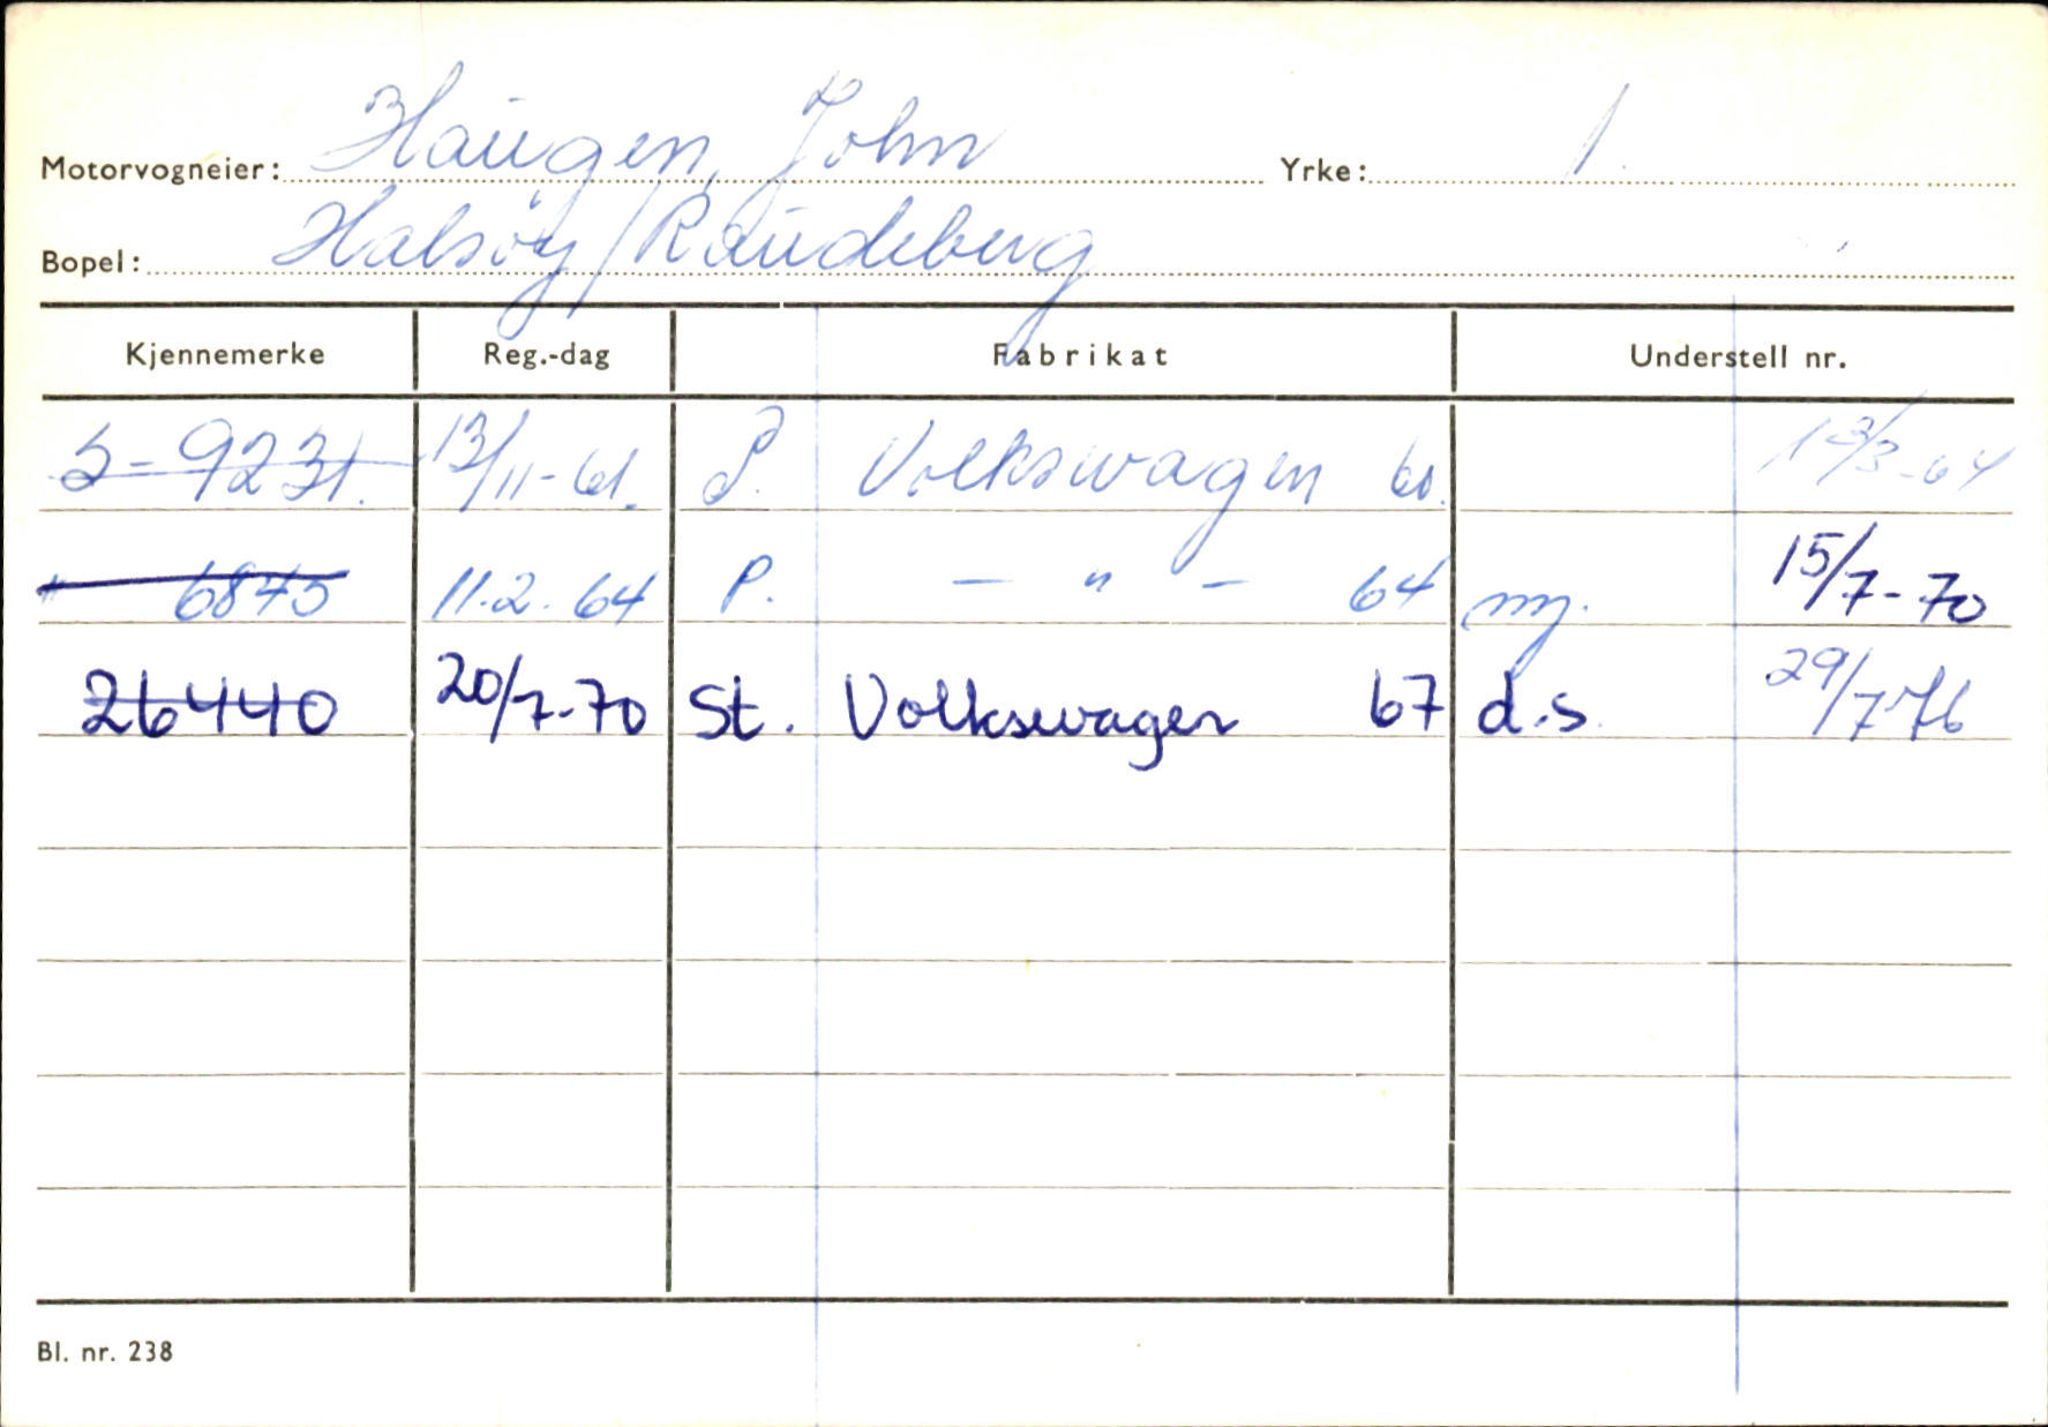 Motorvogneier: Haugen, John Yrke: 1.
Bopel: Halsöy/Raudeberg
Kjennemerke Reg.-dag Fabrikat Understell nr.
S-9231. 13/11-61. P. Volkswagen 60. 13/3-64
" 6845 11.2.64 P. - " - 64 ny. 15/7-70
26440 20/7-70 St. Volkswagen 67 d.s. 29/7-76
Bl. nr. 238